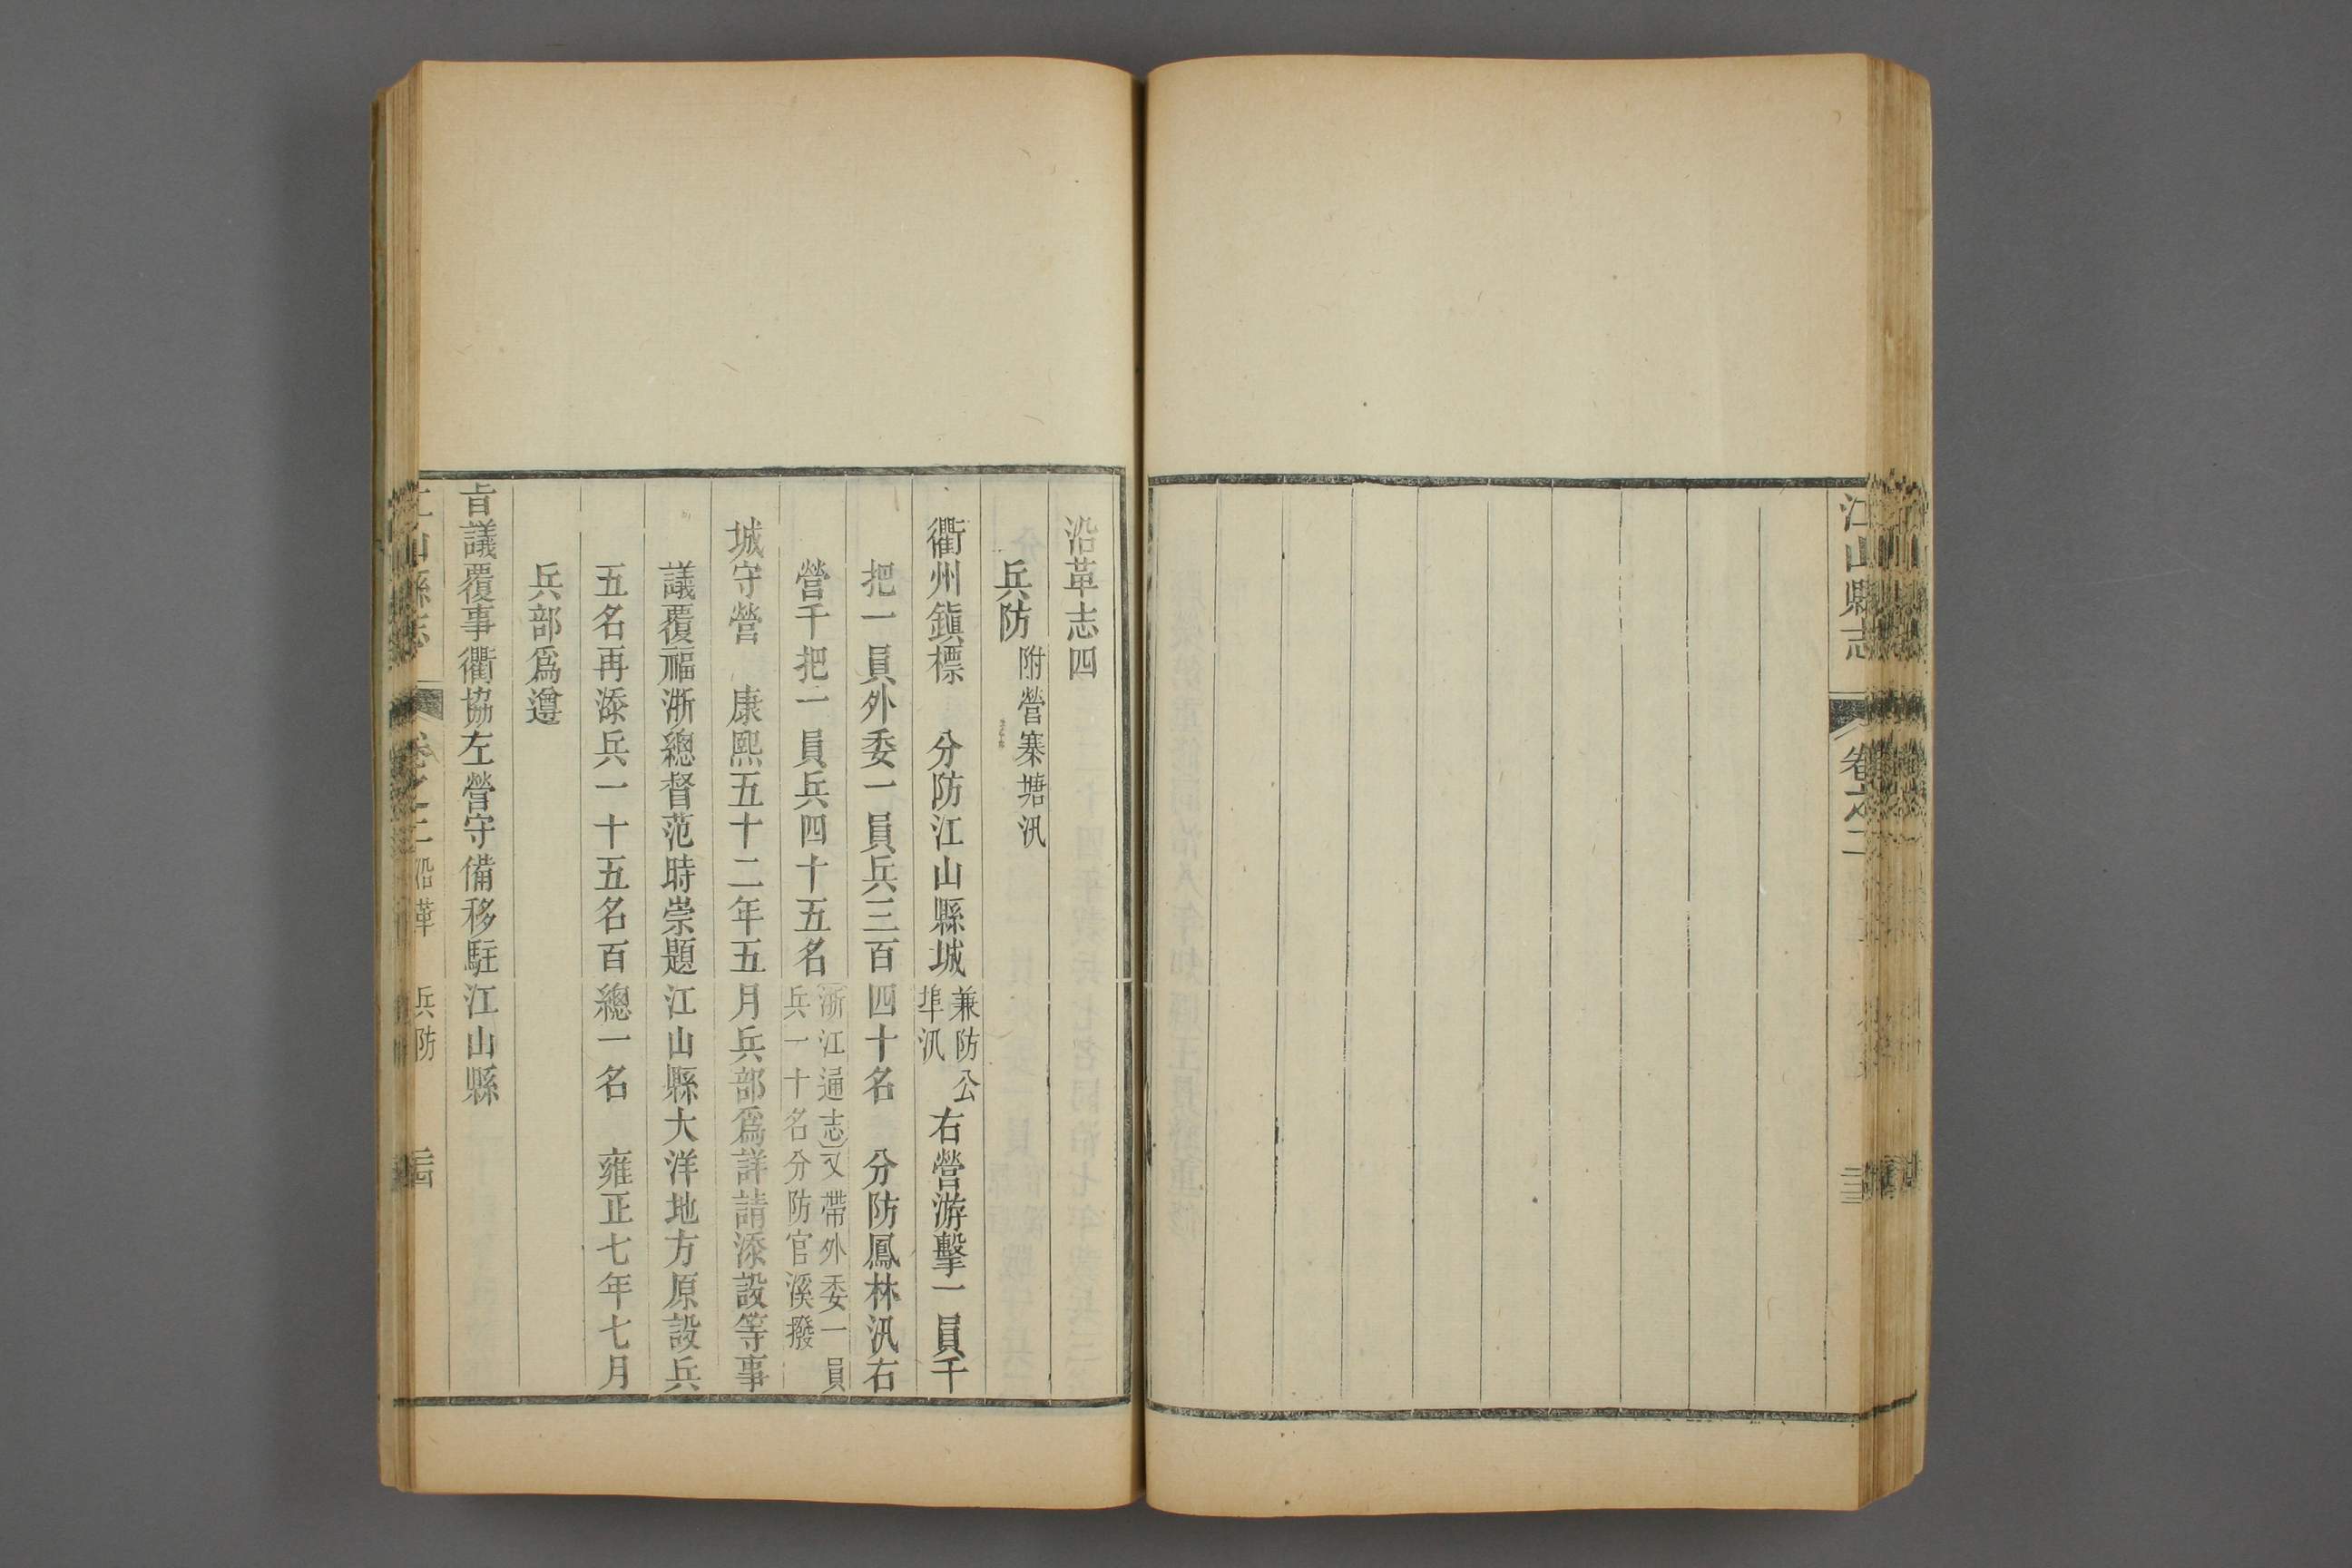 江山縣志 卷之二
沿革志四
兵防 附營寨塘汛
衢州鎮標 分防江山縣城 兼防公埠汛 右營游擊一員千
把一員外委一員兵三百四十名 分防鳳林汛右
營千把一員兵四十五名 浙江通志又帶外委一員兵一十名分防官溪撥
城守營 康熙五十二年五月兵部爲詳請添設等事
議覆福浙總督范時崇題江山縣大洋地方原設兵
五名再添兵一十五名百總一名 雍正七年七月
兵部爲遵
旨議覆事衢協左營守備移駐江山縣
江山縣志 卷之二 沿革 兵防